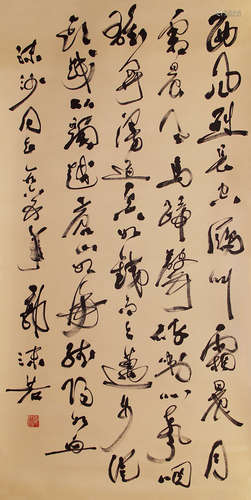 西風烈長空雁叫霜晨月
霜晨月馬蹄聲碎喇叭聲咽
雄關漫道真如鐵而今邁步從
頭越從頭越蒼山如海殘陽如血
沫沙同志 郭沫若